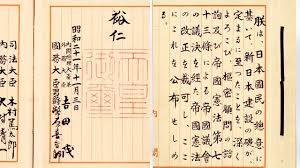 朕は、日本國民の總意に
基いて、新日本建設の礎が、
定まるに至つたことを、深く
よろこび、樞密顧問の諮
詢及び帝國憲法第七
十三條による帝國議会
の議決を経た帝國憲法
の改正を裁可し、ここに
これを公布せしめる。
内閣
裕仁
天皇御璽
昭和二十一年十一月三日
内閣總理大臣兼
外務大臣 吉田茂
國務大臣 男爵 幣原喜重郎
司法大臣 木村篤太郎
内務大臣